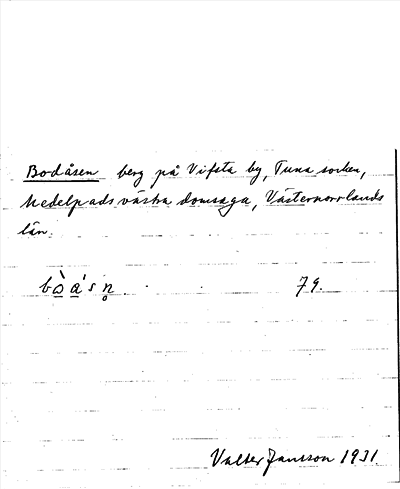 Bodåsen berg på Vifsta by, Tuna socken,
Medelpads västra domsaga, Västernorrlands
län.
79.
Valter Jansson 1931